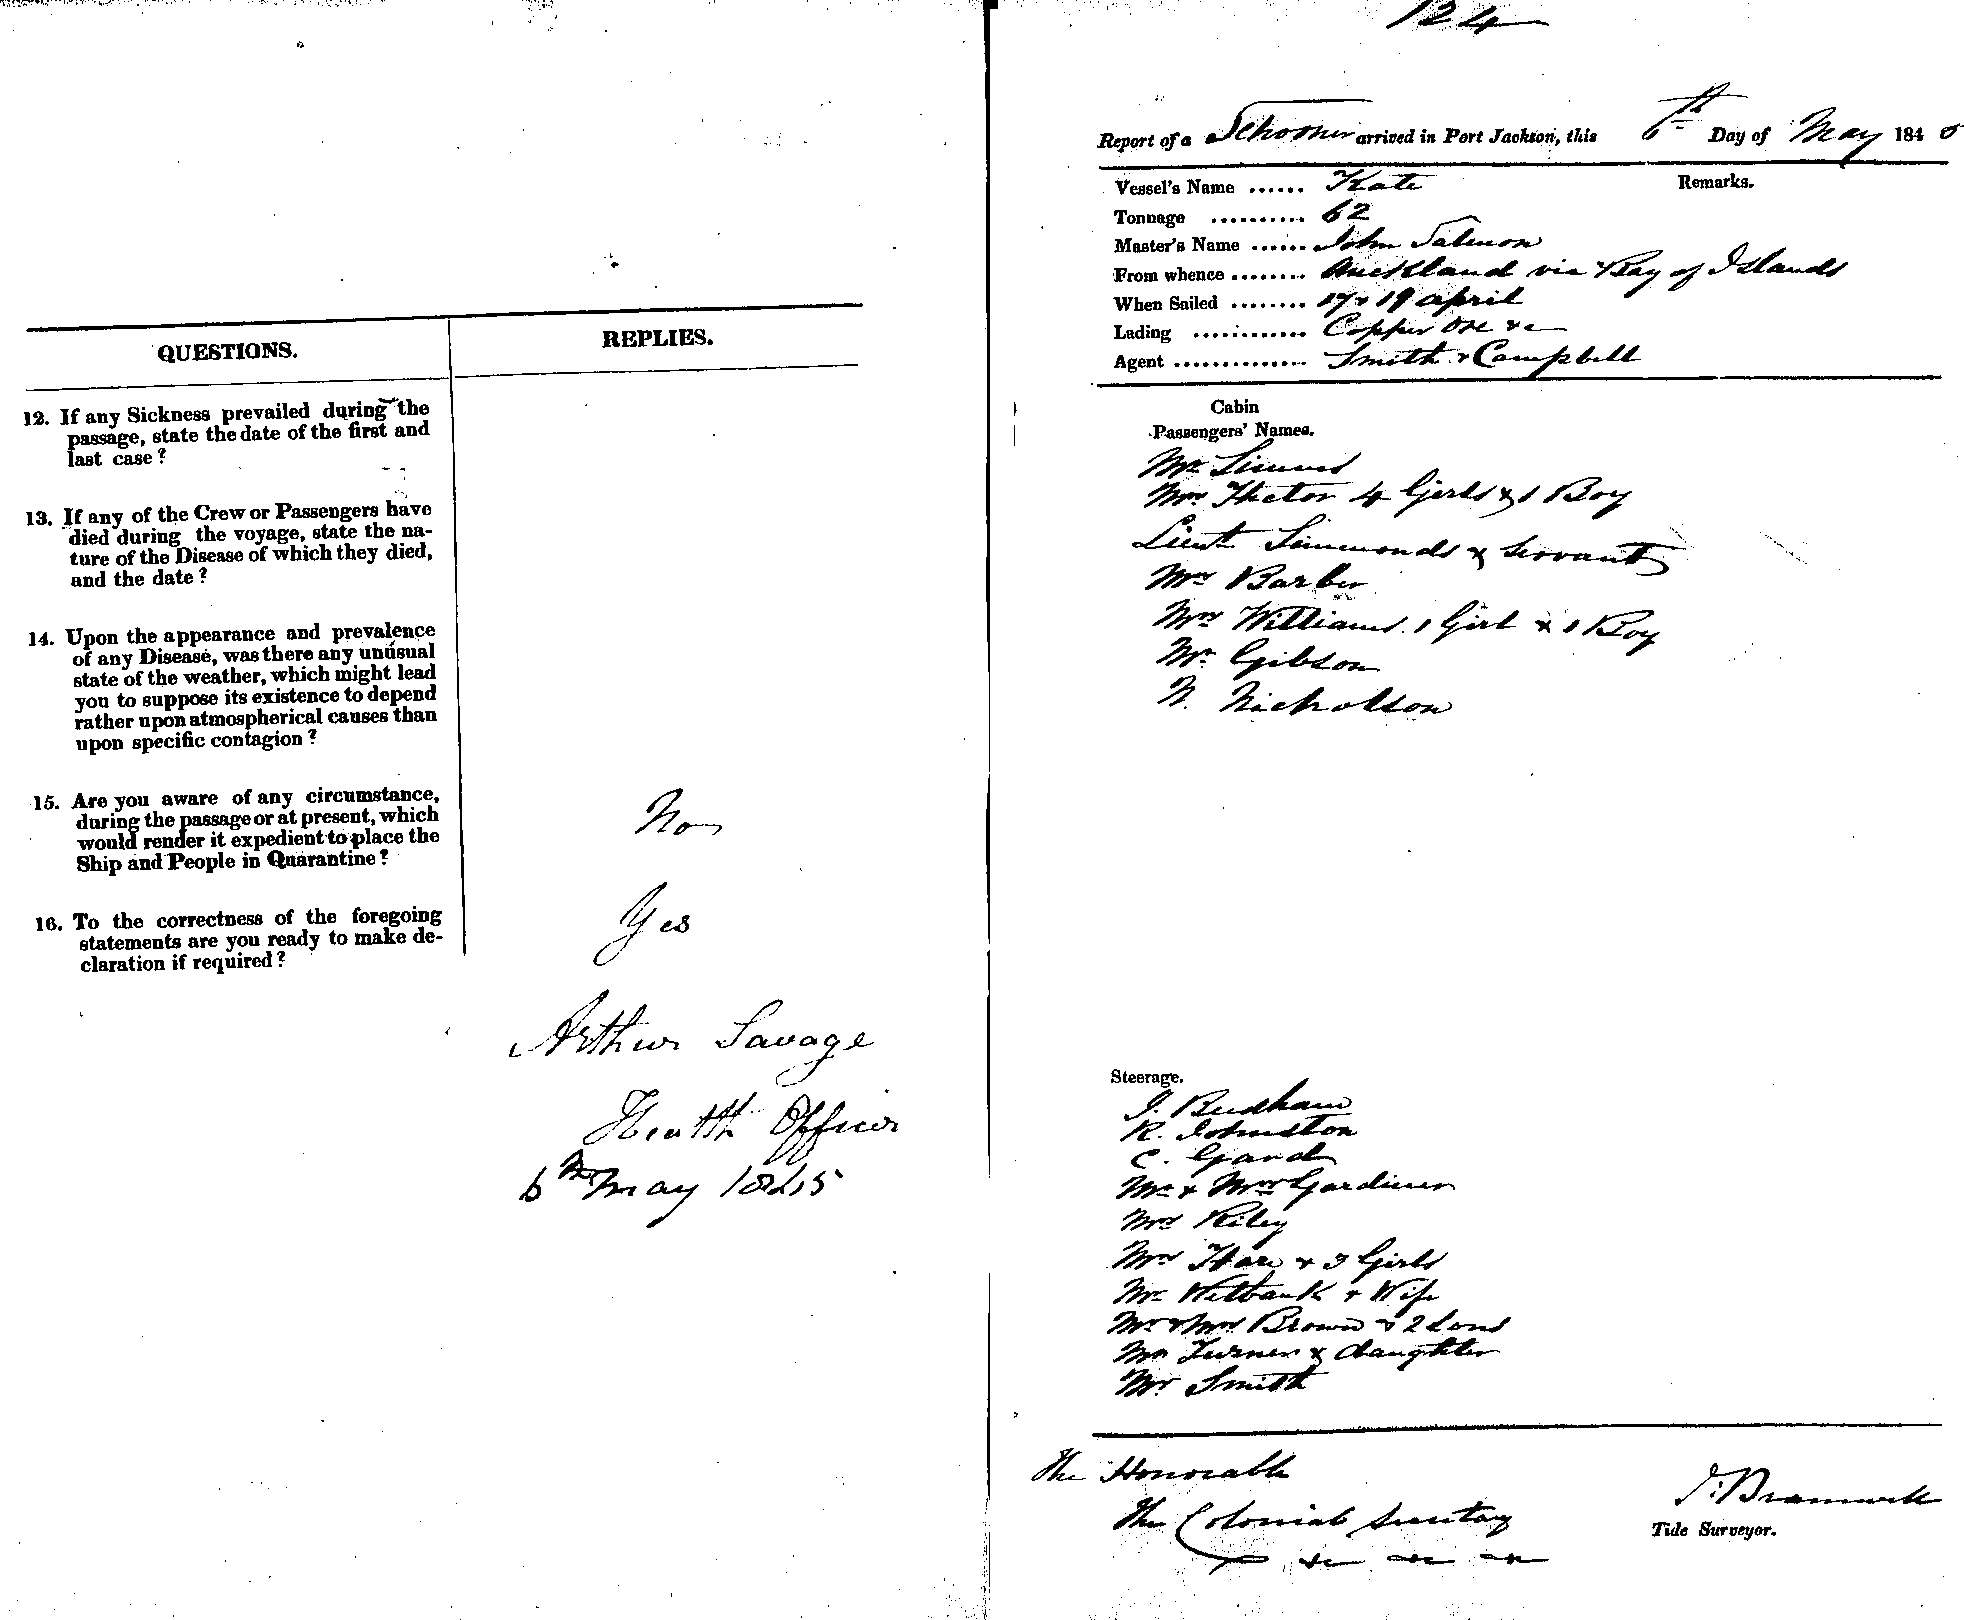 QUESTIONS.
REPLIES.
12. If any Sickness prevailed during the
passage, state the date of the first and
last case?
13. If any of the Crew or Passengers have
died during the voyage, state the na-
ture of the Disease of which they died,
and the date?
14. Upon the appearance and prevalence
of any Disease, was there any unusual
state of the weather, which might lead
you to suppose its existence to depend
rather upon atmospherical causes than
upon specific contagion?
15. Are you aware of any circumstance,
during the passage or at present, which
would render it expedient to place the
Ship and People in Quarantine?
No
16. To the correctness of the foregoing
statements are you ready to make de-
claration if required?
Yes
Arthur Savage
Health Officer
6th May 1845
124
Report of a Schooner arrived in Port Jackson, this 6th Day of May 1845
Remarks.
Vessel's Name ...... Kate
Tonnage .......... 62
Master's Name ...... John Salmon
From whence ........ Auckland via Bay of Islands
When Sailed ........ 17 & 19 april
Lading ............ Copper Ore &c
Agent .............. Smith & Campbell
Cabin
Passengers' Names.
Mr
Mrs Hector 4 Girls & 1 Boy
Lieut Simmonds & Servant
Mrs Barber
Mrs Williams 1 Girl & 1 Boy
Mr. Gibson
N. Nicholson
Steerage.
J.
R. Johnston
C. Gand
Mr & Mrs Gardiner
Mrs Riley
Mrs Hare & 3 Girls
Mr Wilbank & Wife
Mr & Mrs Brown & 2 Sons
Mrs Turner & daughter
Mr. Smith
The Honorable
The Colonial Secretary
&c &c &c
J. Bramwell
Tide Surveyor.